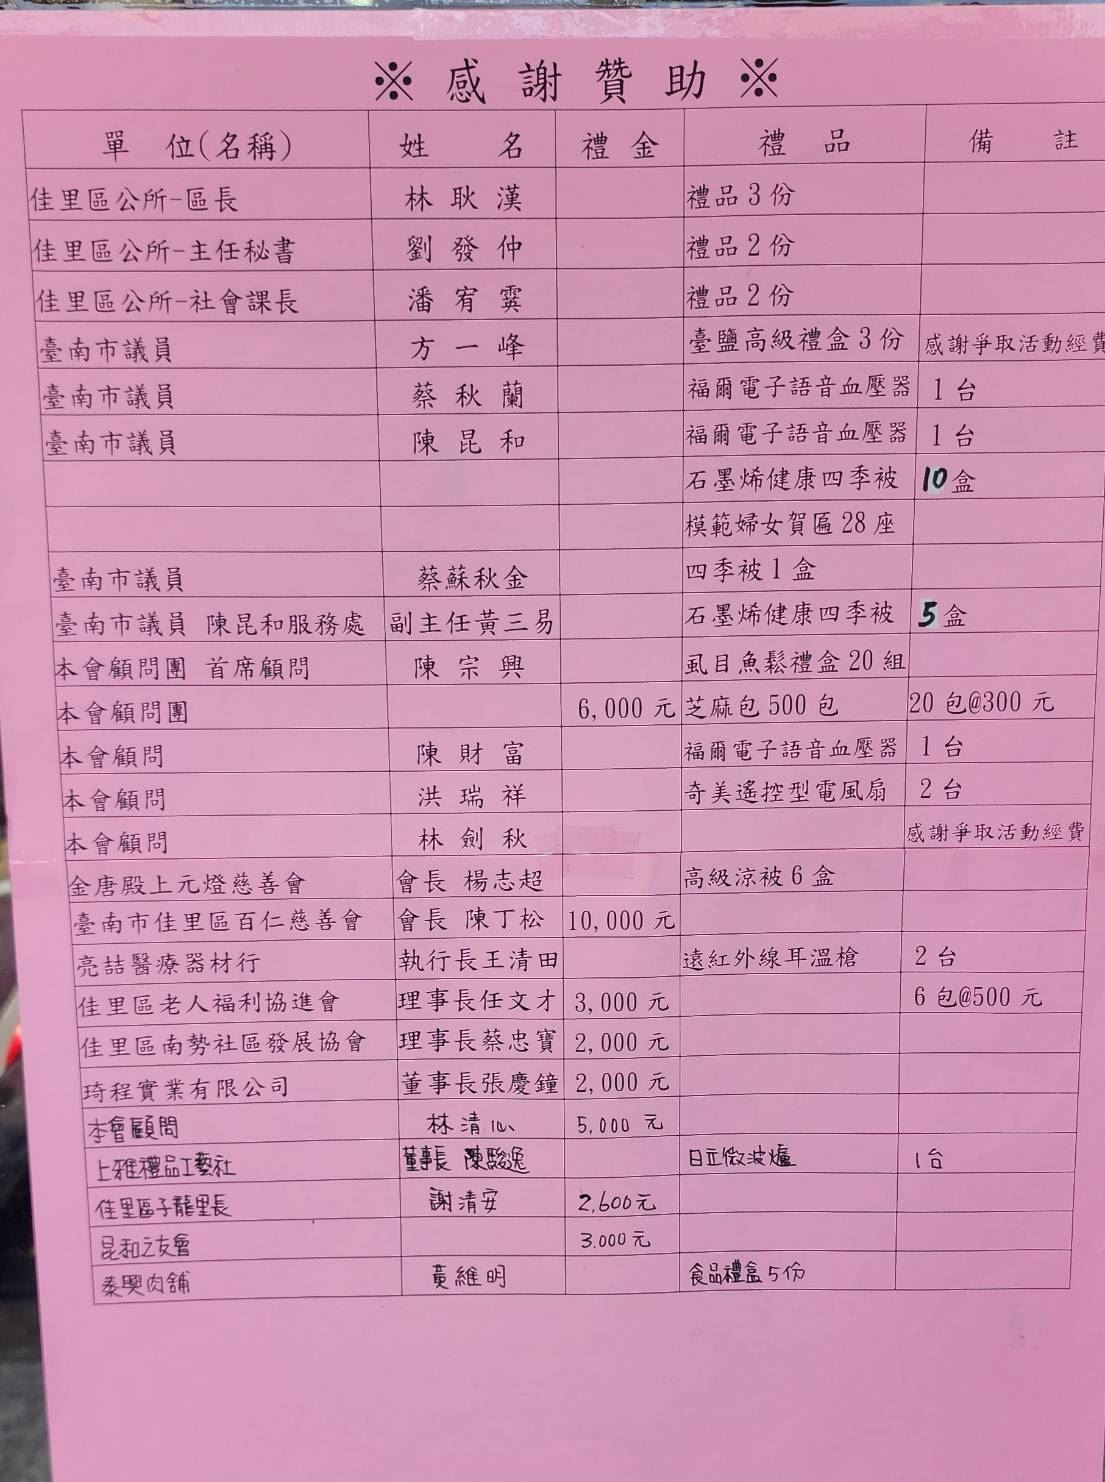 ※感謝贊助※
單位(名稱) 姓名 禮金 禮品 備註
佳里區公所-區長 林耿漢 禮品3份
佳里區公所-主任秘書 劉發仲 禮品2份
佳里區公所-社會課長 潘宥霙 禮品2份
臺南市議員 方一峰 臺鹽高級禮盒3份 感謝爭取活動經費
臺南市議員 蔡秋蘭 福爾電子語音血壓器 1台
臺南市議員 陳昆和 福爾電子語音血壓器 1台
石墨烯健康四季被 10盒
模範婦女賀匾28座
臺南市議員 蔡蘇秋金 四季被1盒
臺南市議員 陳昆和服務處 副主任黃三易 石墨烯健康四季被 5盒
本會顧問團 首席顧問 陳宗興 虱目魚鬆禮盒20組
本會顧問團 6,000元 芝麻包500包 20包@300元
本會顧問 陳財富 福爾電子語音血壓器 1台
本會顧問 洪瑞祥 奇美遙控型電風扇 2台
本會顧問 林劍秋 感謝爭取活動經費
金唐殿上元燈慈善會 會長 楊志超 高級涼被6盒
臺南市佳里區百仁慈善會 會長 陳丁松 10,000元
亮喆醫療器材行 執行長王清田 遠紅外線耳溫槍 2台
佳里區老人福利協進會 理事長任文才 3,000元 6包@500元
佳里區南勢社區發展協會 理事長蔡忠寶 2,000元
琦程實業有限公司 董事長張慶鐘 2,000元
本會顧問 林清沁 5,000元
上雅禮品工藝社 董事長 陳駿逸 日立微波爐 1台
佳里區子龍里長 謝清安 2,600元
昆和之友會 3.000元
泰興肉舖 黃維明 食品禮盒5份